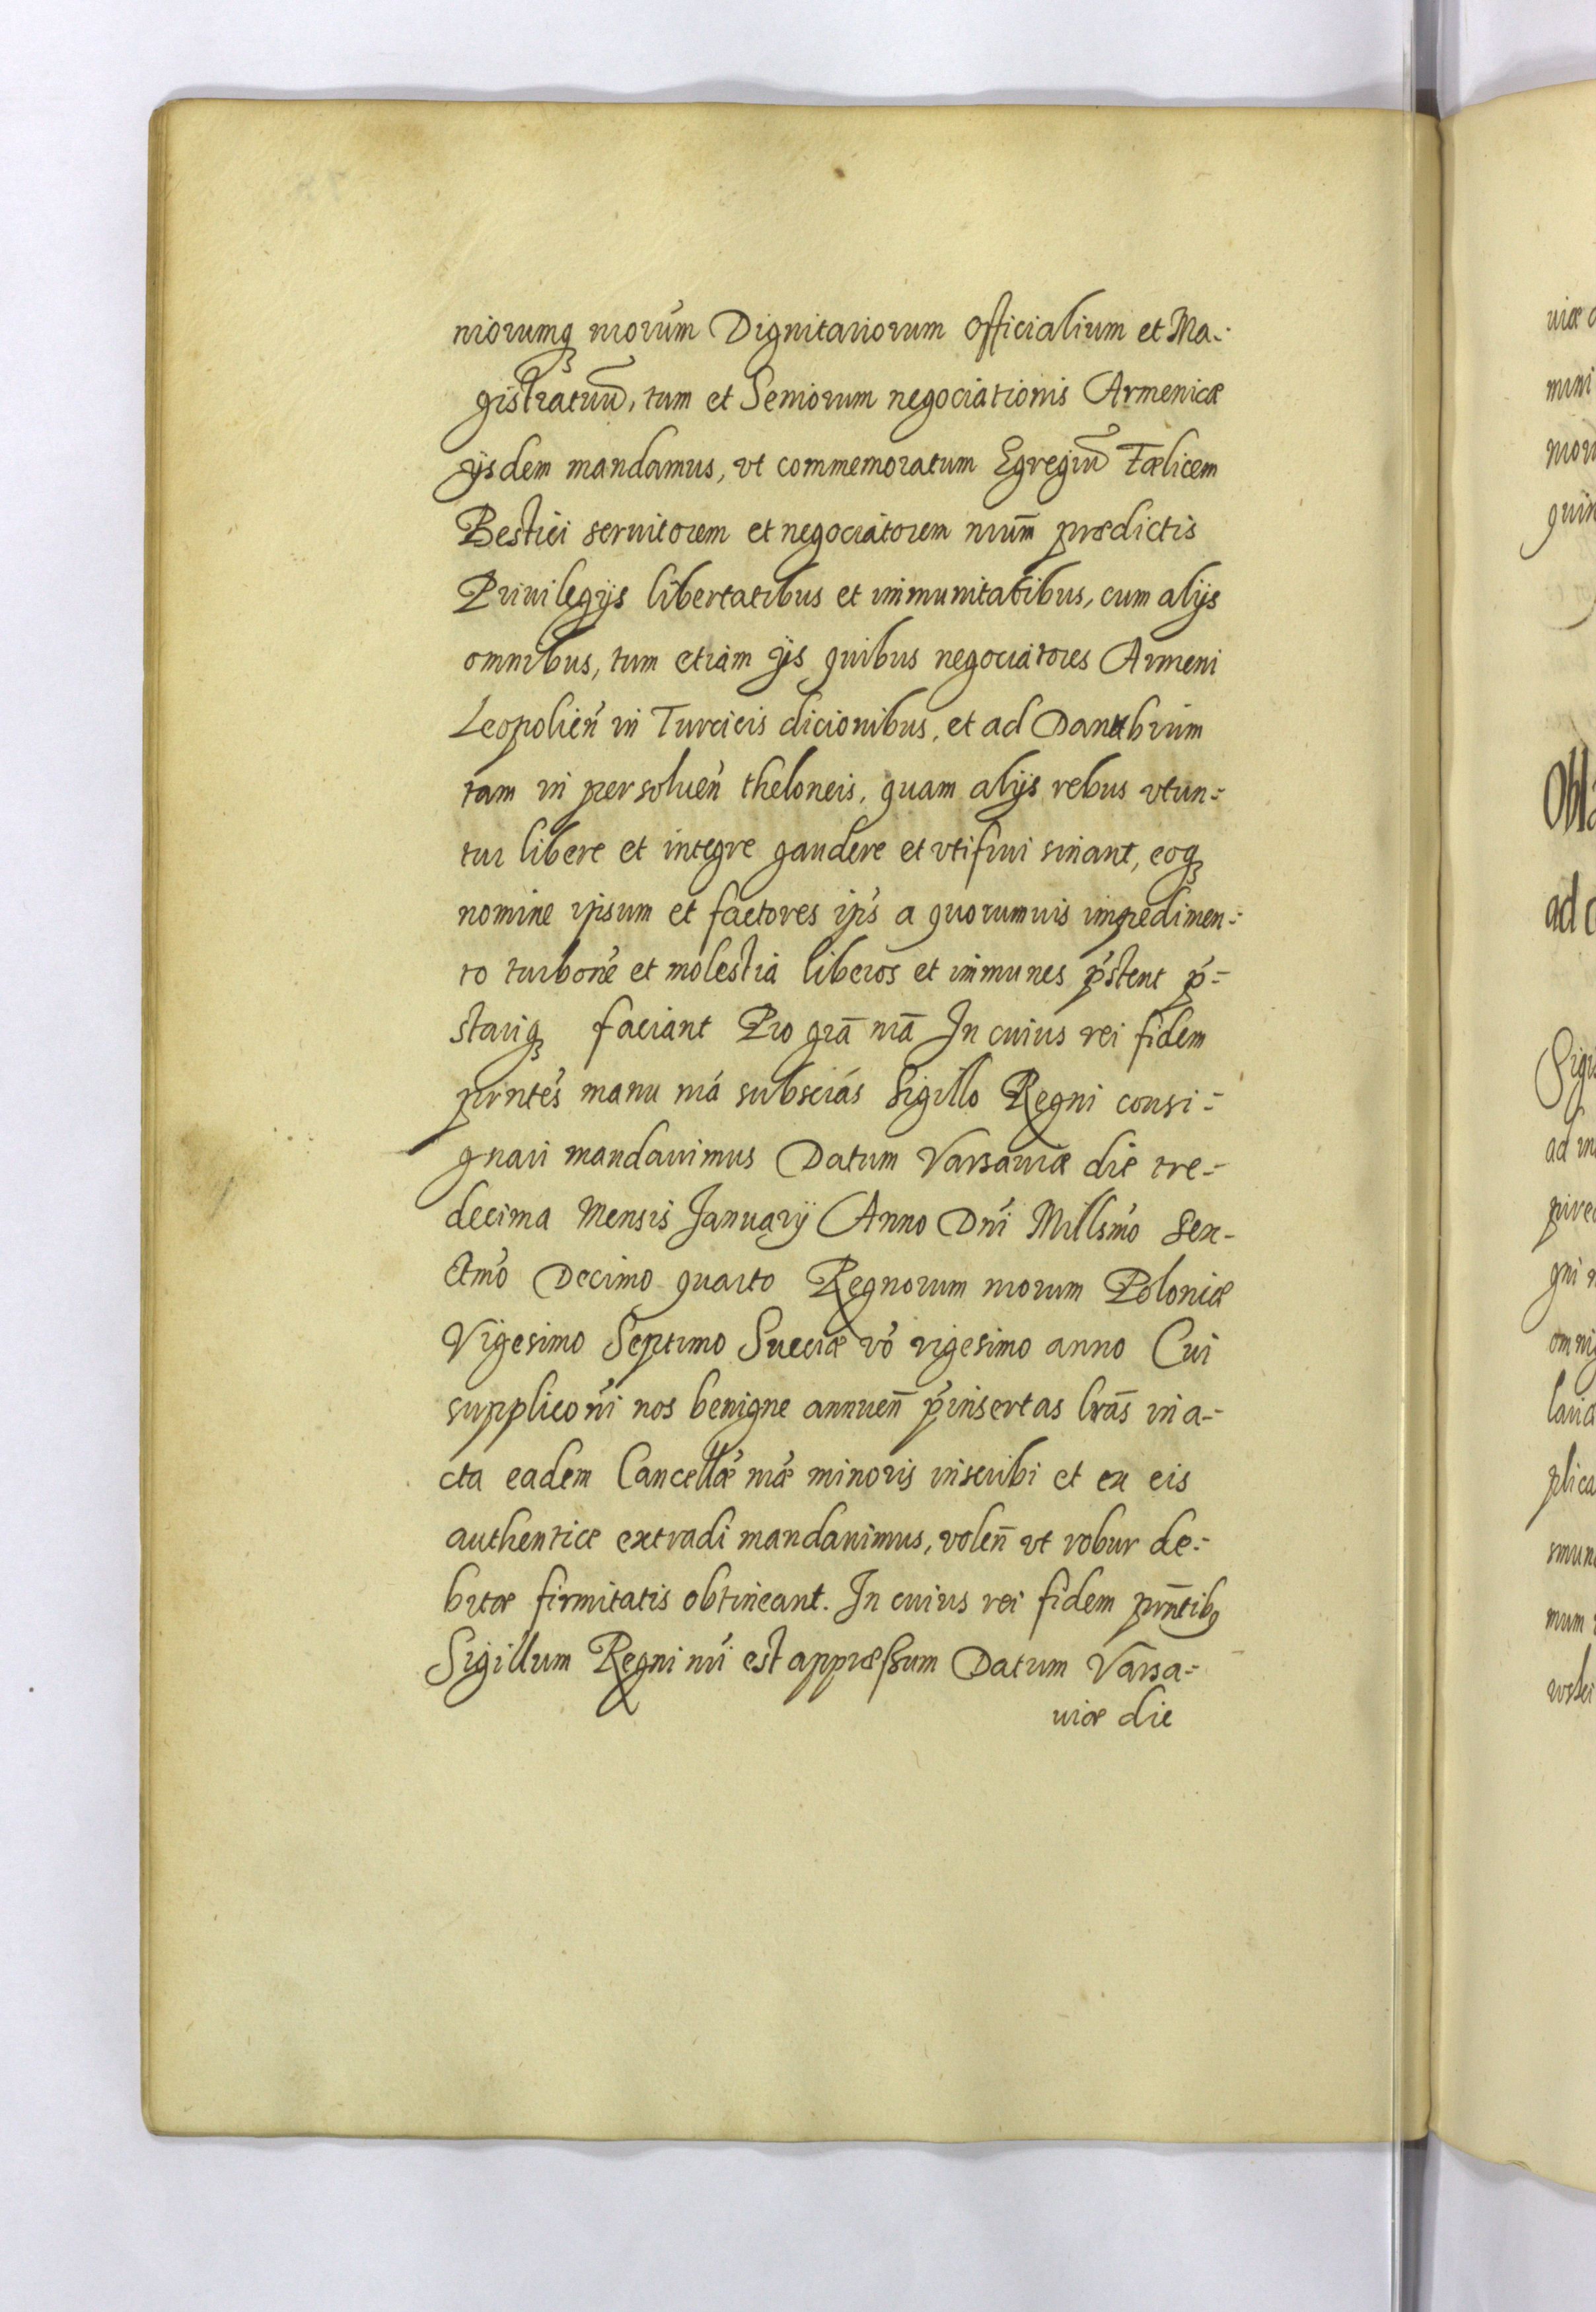 niorumq́ nrorum Dignitariorum Officialium et Ma-
gistratuū, tum et Seniorum negociationis Armenicæ
ijsdem mandamus, vt commemoratum Egregiū Fælicem
Bestici seruitorem et negociatorem nrum̄ prædictis
Priuilegijs libertatibus et immunitatibus, cum alijs
omnibus, tum etiam ijs quibus negociatores Armeni
Leopolień in Turcicis dicionibus, et ad Danubium
tam in persoluen̄ theloneis, quam alijs rebus vtun-
tur libere et integre gaudere et vtifrui sinant, eoq́
nomine ipsum et factores ip̄s a quorumuis impedimen-
to turbon̄e et molestia liberos et immunes p̄stent p̄-
stariq́ faciant Pro grā nrā In cuius rei fidem
prn̄tes manu nrā subscrās Sigillo Regni consi-
gnari mandauimus Datum Varsauiæ die tre-
decima Mensis Januarij Anno Dn̄i Millsm̄o Sex-
ctm̄o Decimo quarto Regnorum nrorum Poloniæ
Vigesimo Septimo Sueciæ vō vigesimo anno Cui
supplicon̄i nos benigne annuen̄ p̄insertas lrās in a-
cta eadem Cancellæ nræ minoris inscribi et ex eis
authentice extradi mandauimus, volen̄ vt robur de-
bitæ firmitatis obtineant. In cuius rei fidem prn̄tibq
Sigillum Regni nrī est appræssum Datum Varsa-
uiæ die